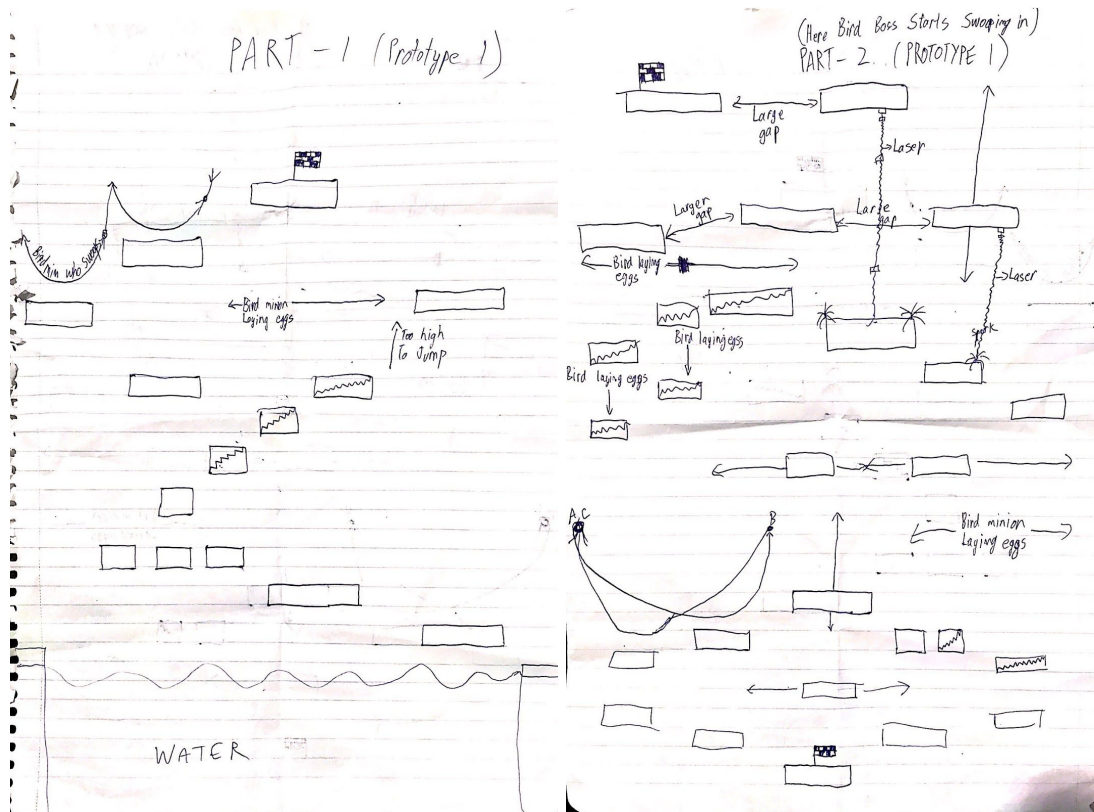 PART-1 (Prototype 1)
Bird min who swoops
Bird minion
Laying eggs
Too high
To Jump
WATER
(Here Bird Boss Starts Swooping in)
PART-2. (PROTOTYPE 1)
Large
gap
Laser
Larger
gap
Large
gap
Bird laying
eggs
Laser
Bird laying eggs
spark
Bird laying eggs
A,C
B
Bird minion
Laying eggs